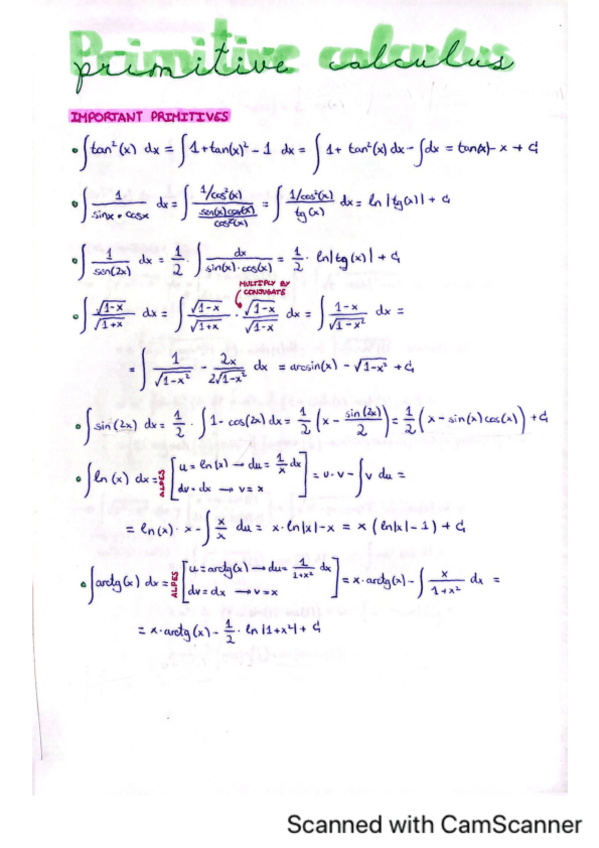 Primitive calculus
primitive calculus
IMPORTANT PRIMITIVES
• ∫tan²(x) dx = ∫1+tan(x)² - 1 dx = ∫1+ tan²(x) dx - ∫dx = tan(x) - x + C
• ∫ 1/(sinx • cosx) dx = ∫ (1/cos²(x))/(sen(x)cos(x)/cos²(x)) = ∫ (1/cos²(x))/(tg(x)) dx = ln |tg(x)| + C
• ∫ 1/(sen(2x)) dx = 1/2 · ∫ dx/(sin(x)·cos(x)) = 1/2 · ln|tg(x)| + C
MULTIPLY BY
CONJUGATE
• ∫ √(1-x)/√(1+x) dx = ∫ √(1-x)/√(1+x) · √(1-x)/√(1-x) dx = ∫ (1-x)/√(1-x²) dx =
= ∫ 1/√(1-x²) - 2x/(2√(1-x²)) dx = arcsin(x) - √(1-x²) + C
• ∫sin(2x) dx = 1/2 · ∫1-cos(2x) dx = 1/2 (x - sin(2x)/2) = 1/2 (x - sin(x)cos(x)) + C
• ∫ln(x) dx = ALPES [u = ln(x) → du = 1/x dx
dv = dx → v = x] = u·v - ∫v du =
= ln(x)·x - ∫ x/x du = x·ln|x| - x = x (ln|x| - 1) + C
• ∫arctg(x) dx = ALPES [u = arctg(x) → du = 1/(1+x²) dx
dv = dx → v = x] = x·arctg(x) - ∫ x/(1+x²) dx =
= x·arctg(x) - 1/2 · ln |1+x²| + C
Scanned with CamScanner